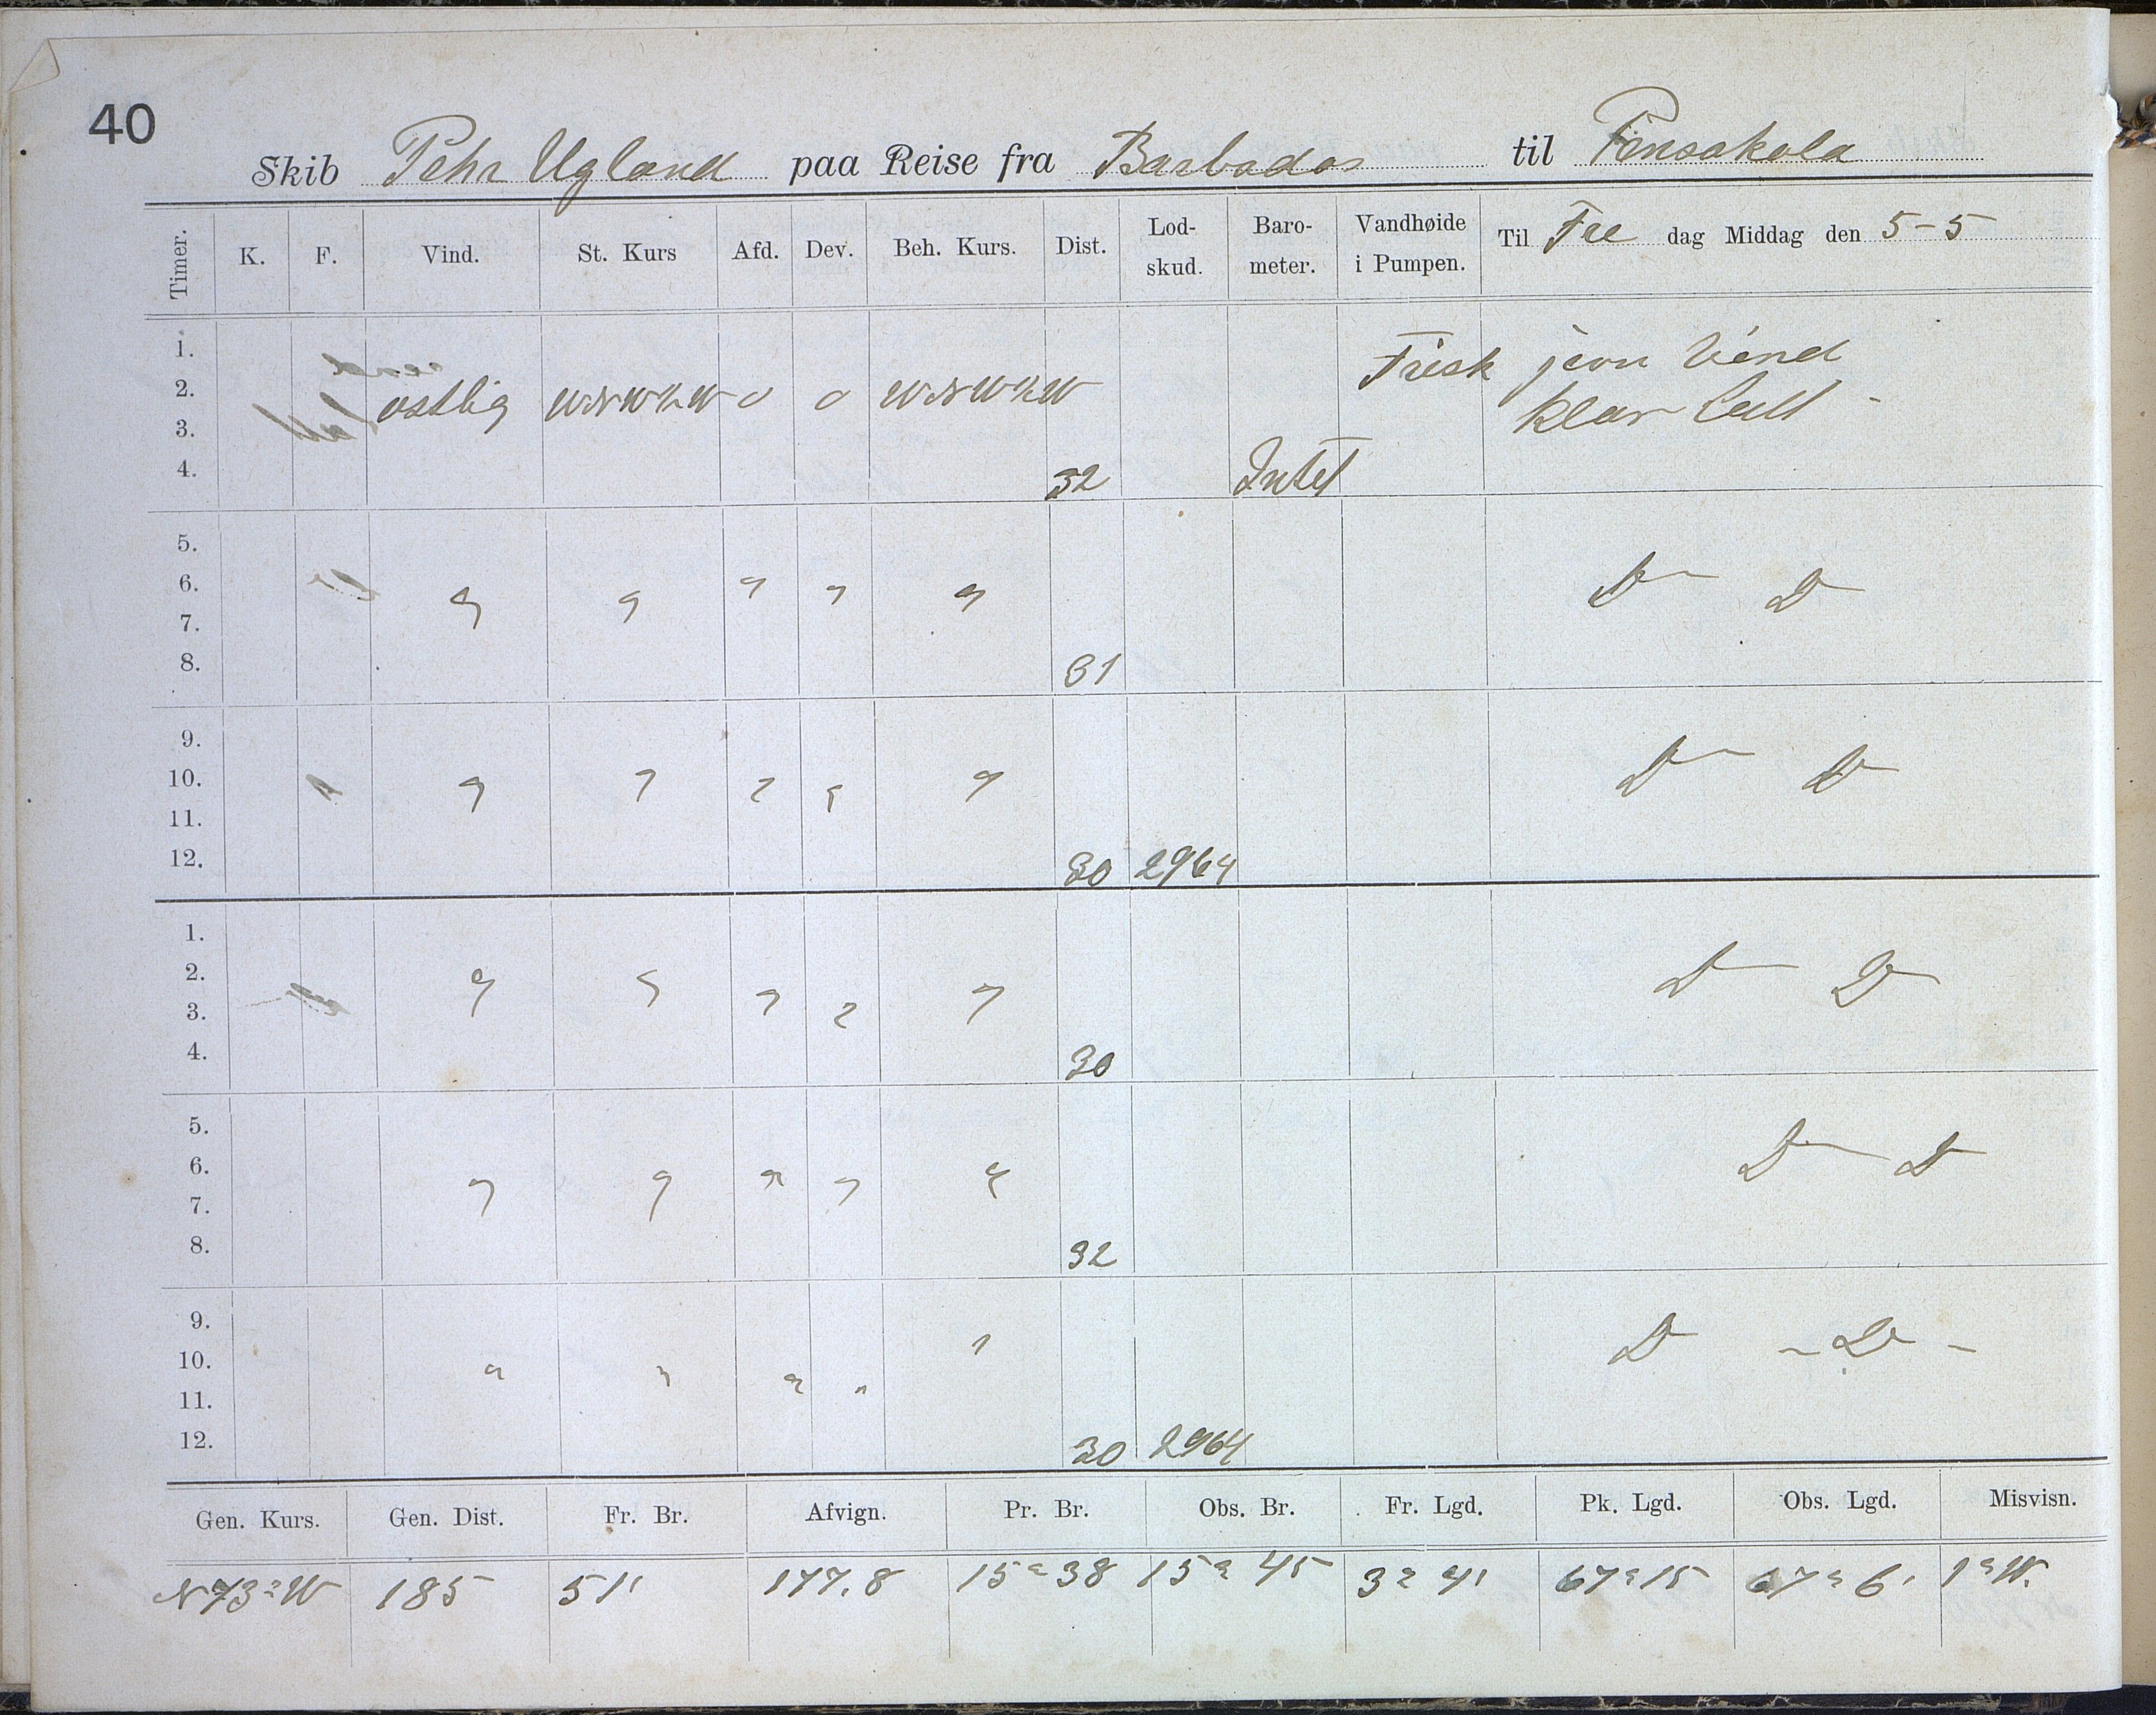 40
Skib Pehr Ugland paa Reise fra Barbados til Pensakola
Timer. K. F. Vind. St. Kurs Afd. Dev. Beh. Kurs. Dist. Lod-skud. Baro-meter. Vandhøide i Pumpen. Til Fre dag Middag den 5-5
1. Frisk jevn Vind
2. ostlig WNW½W 0 0 WNW½W klar Luft
3.
4. 32 Intet
5.
6. " " " " " D D
7.
8. 31
9.
10. " " " " " D D
11.
12. 30 2964
1.
2. " " " " " D D
3.
4. 30
5.
6. " " " " " D D
7.
8. 32
9.
10. " " " " " D - D -
11.
12. 30 2964
Gen. Kurs. Gen. Dist. Fr. Br. Afvign. Pr. Br. Obs. Br. Fr. Lgd. Pk. Lgd. Obs. Lgd. Misvisn.
N73°W 185 51' 177.8 15°38 15°45 3°4' 67°15 67°6' 1°W.